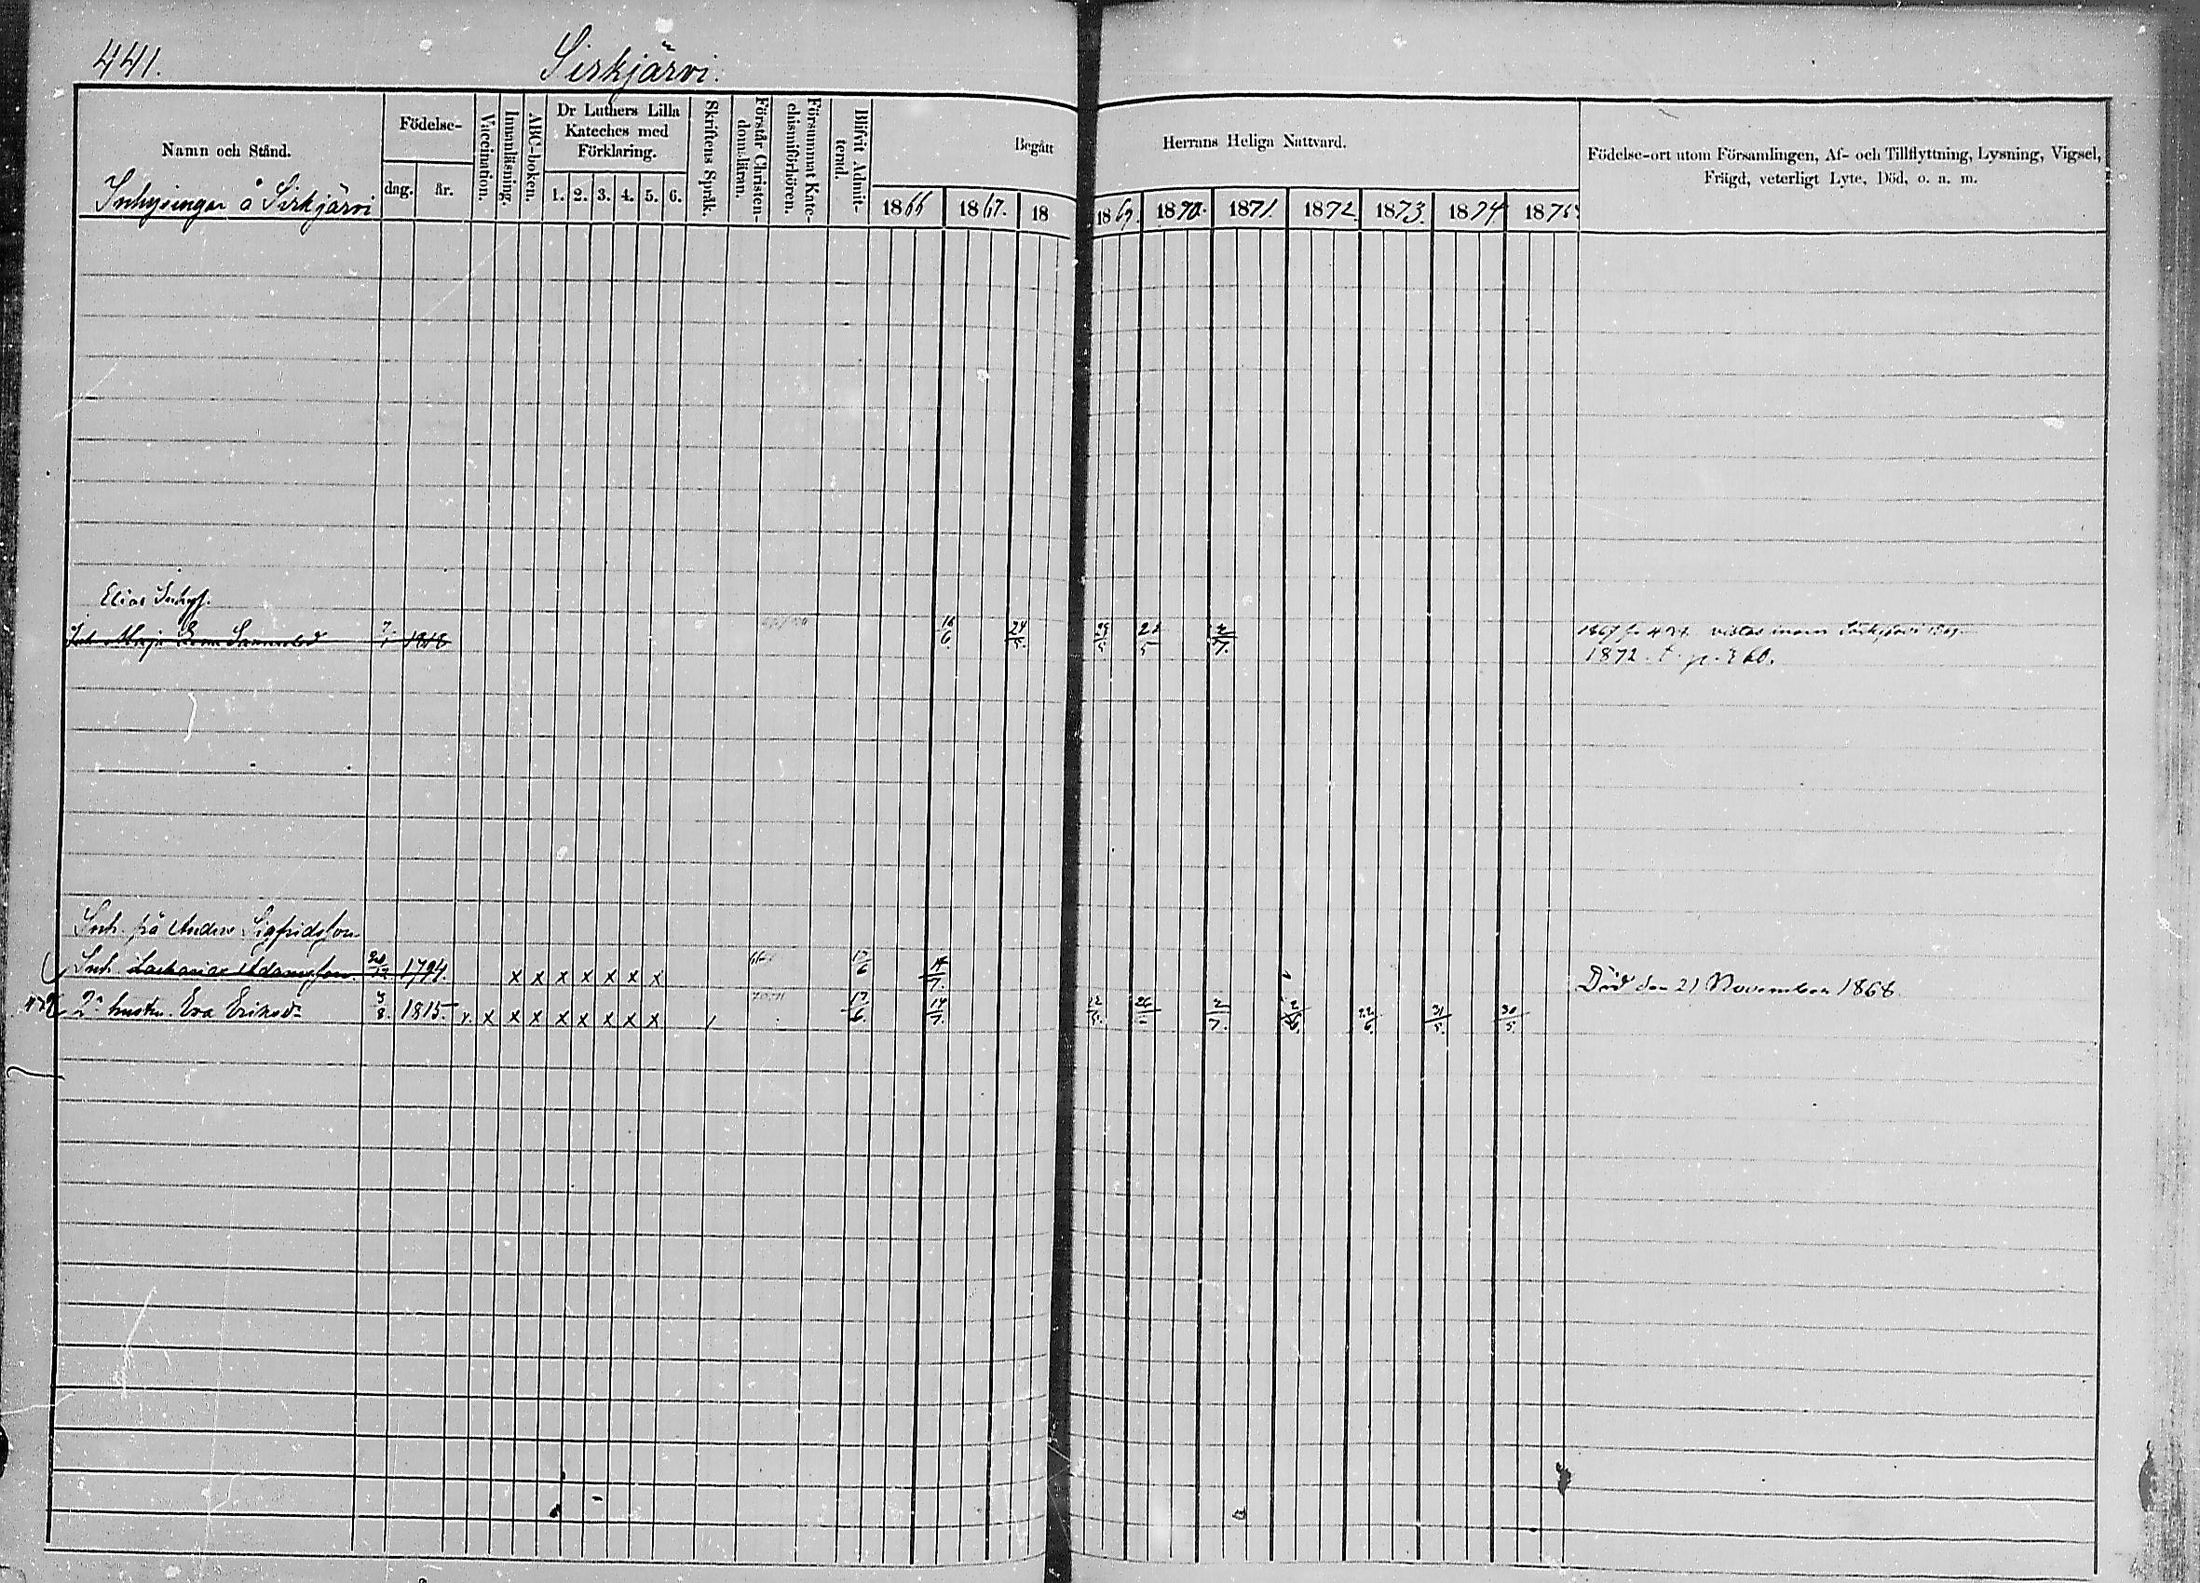 441.
Sirkjärvi.
Namn och Stånd.
Inhysingar å Sirkjärvi
Födelse-
dag. år.
Vaccination.
Innanläsning.
ABC-boken.
Dr Luthers Lilla
Kateches med
Förklaring.
1. 2. 3. 4. 5. 6.
Skriftens Språk.
Förstår Christen-
domsläran.
Försummat Kate-
chismiförhören.
Blifvit Admit-
terad.
Begått Herrans Heliga Nattvard.
1866 1867. 18 1869. 1870. 1871. 1872. 1873. 1874 1875
Födelse-ort utom Församlingen, Af- och Tillflyttning, Lysning, Vigsel,
Frägd, veterligt Lyte, Död, o. a. m.
Elias
Maja 1818 16/6. 24/5. 2/7. 1867 fr.
1872. t. p.
Inh. på Anders Sigfridsson
Inh. Zacharias Adamsson 20/12 1794. x x x x x x x 17/6 14/7. Död den 21 November 1868.
2a hustru Eva Eriksd. 3/8. 1815 x x x x x x x x x 17/6. 14/7. 2/7. 22/6. 31/5. 30/5.